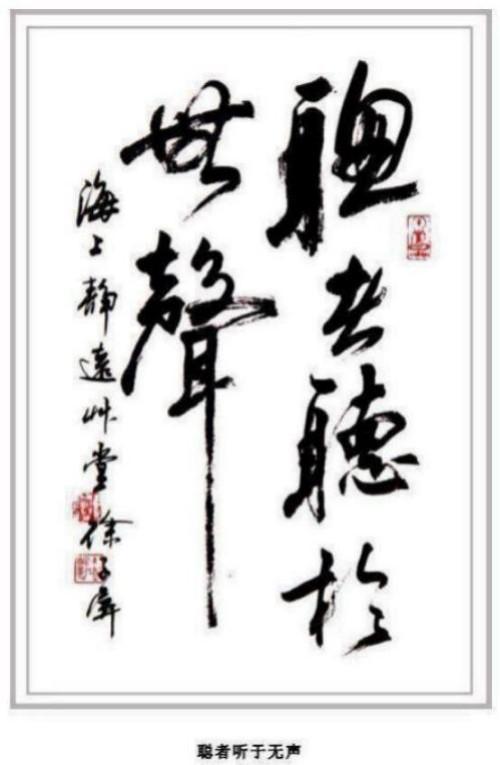 聰者聽於
無聲
海上靜遠艸堂徐子
聪者听于无声